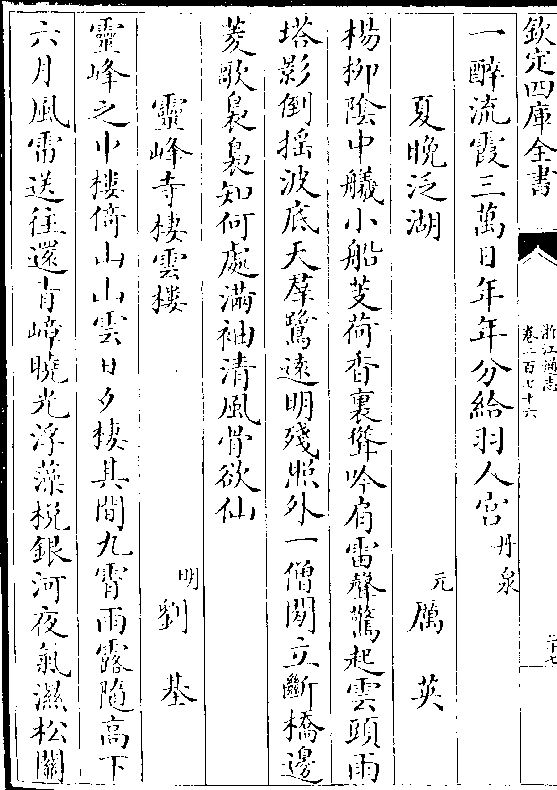 欽定四庫全書
浙江通志
卷二百七十六
二十七
一醉流霞三萬日年年分給羽人宮丹泉
夏晚泛湖
元厲英
楊柳陰中艤小船芰荷香裏聳吟肩雷聲驚起雲頭雨
塔影倒搖波底天羣鷺遠明殘照外一僧閒立斷橋邊
菱歌裊裊知何處滿袖清風骨欲仙
靈峰寺棲雲樓
明劉基
靈峰之中樓倚山山雲日夕棲其間九霄雨露隨高下
六月風雷送往還青嶂曉光浮藻梲銀河夜氣濕松關